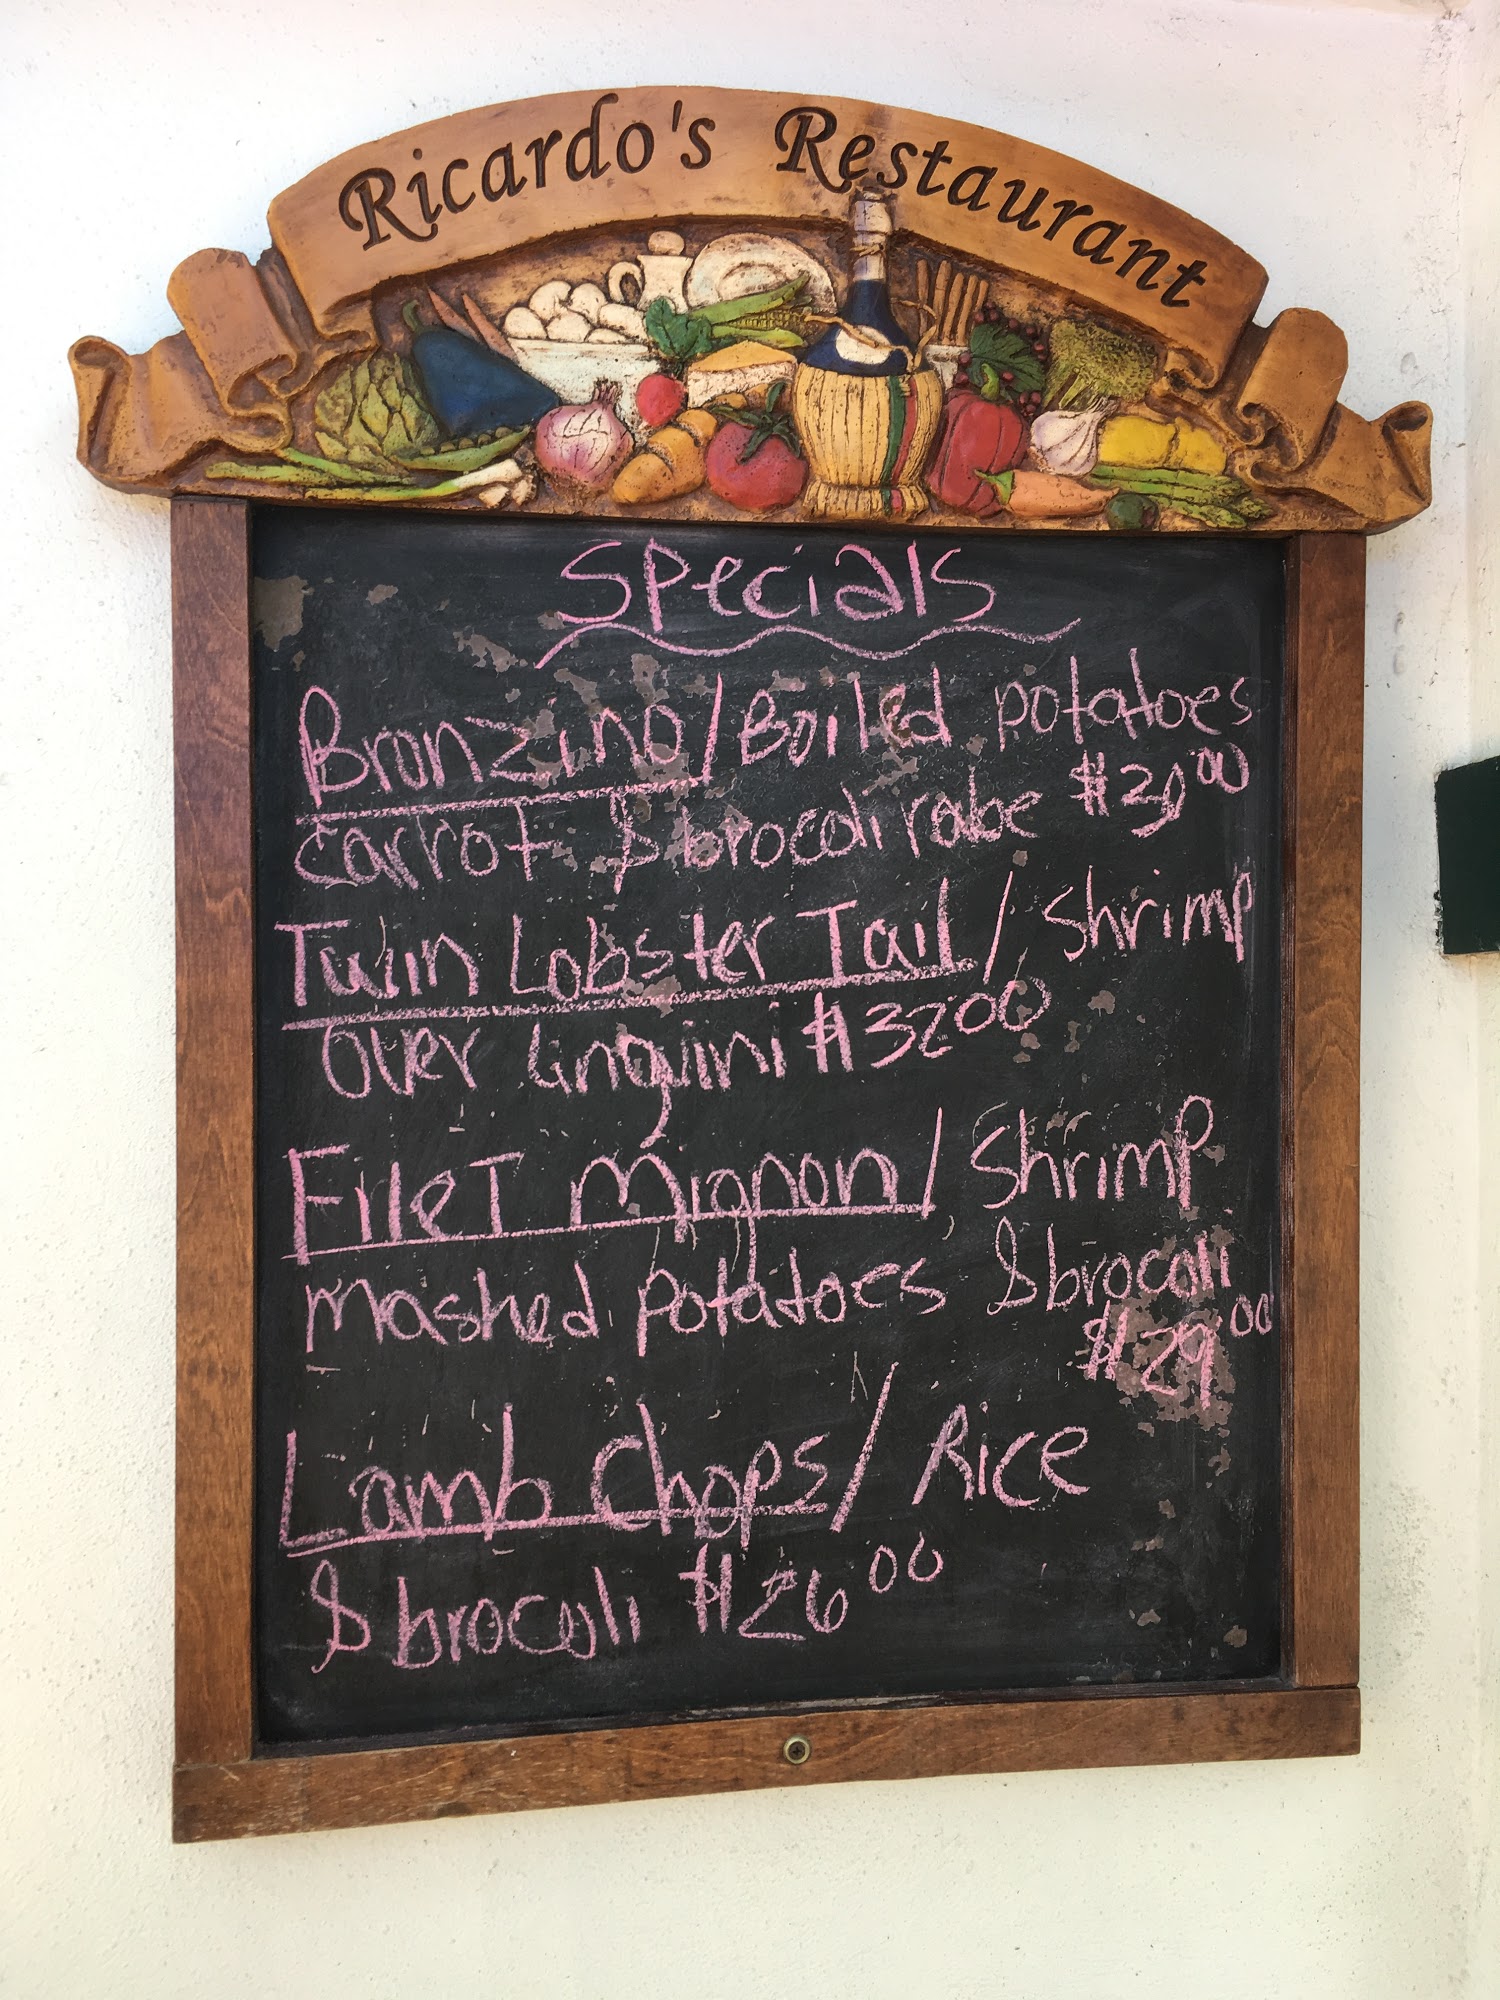 Ricardo's Restaurant
Specials
Bronzino/Boiled potatoes
carrot & brocoli rabe $30.00
Twin Lobster Tail/shrimp
over linguini $32.00
Filet Mignon/shrimp
mashed potatoes & brocoli
$29.00
Lamb Chops/Rice
& brocoli $26.00